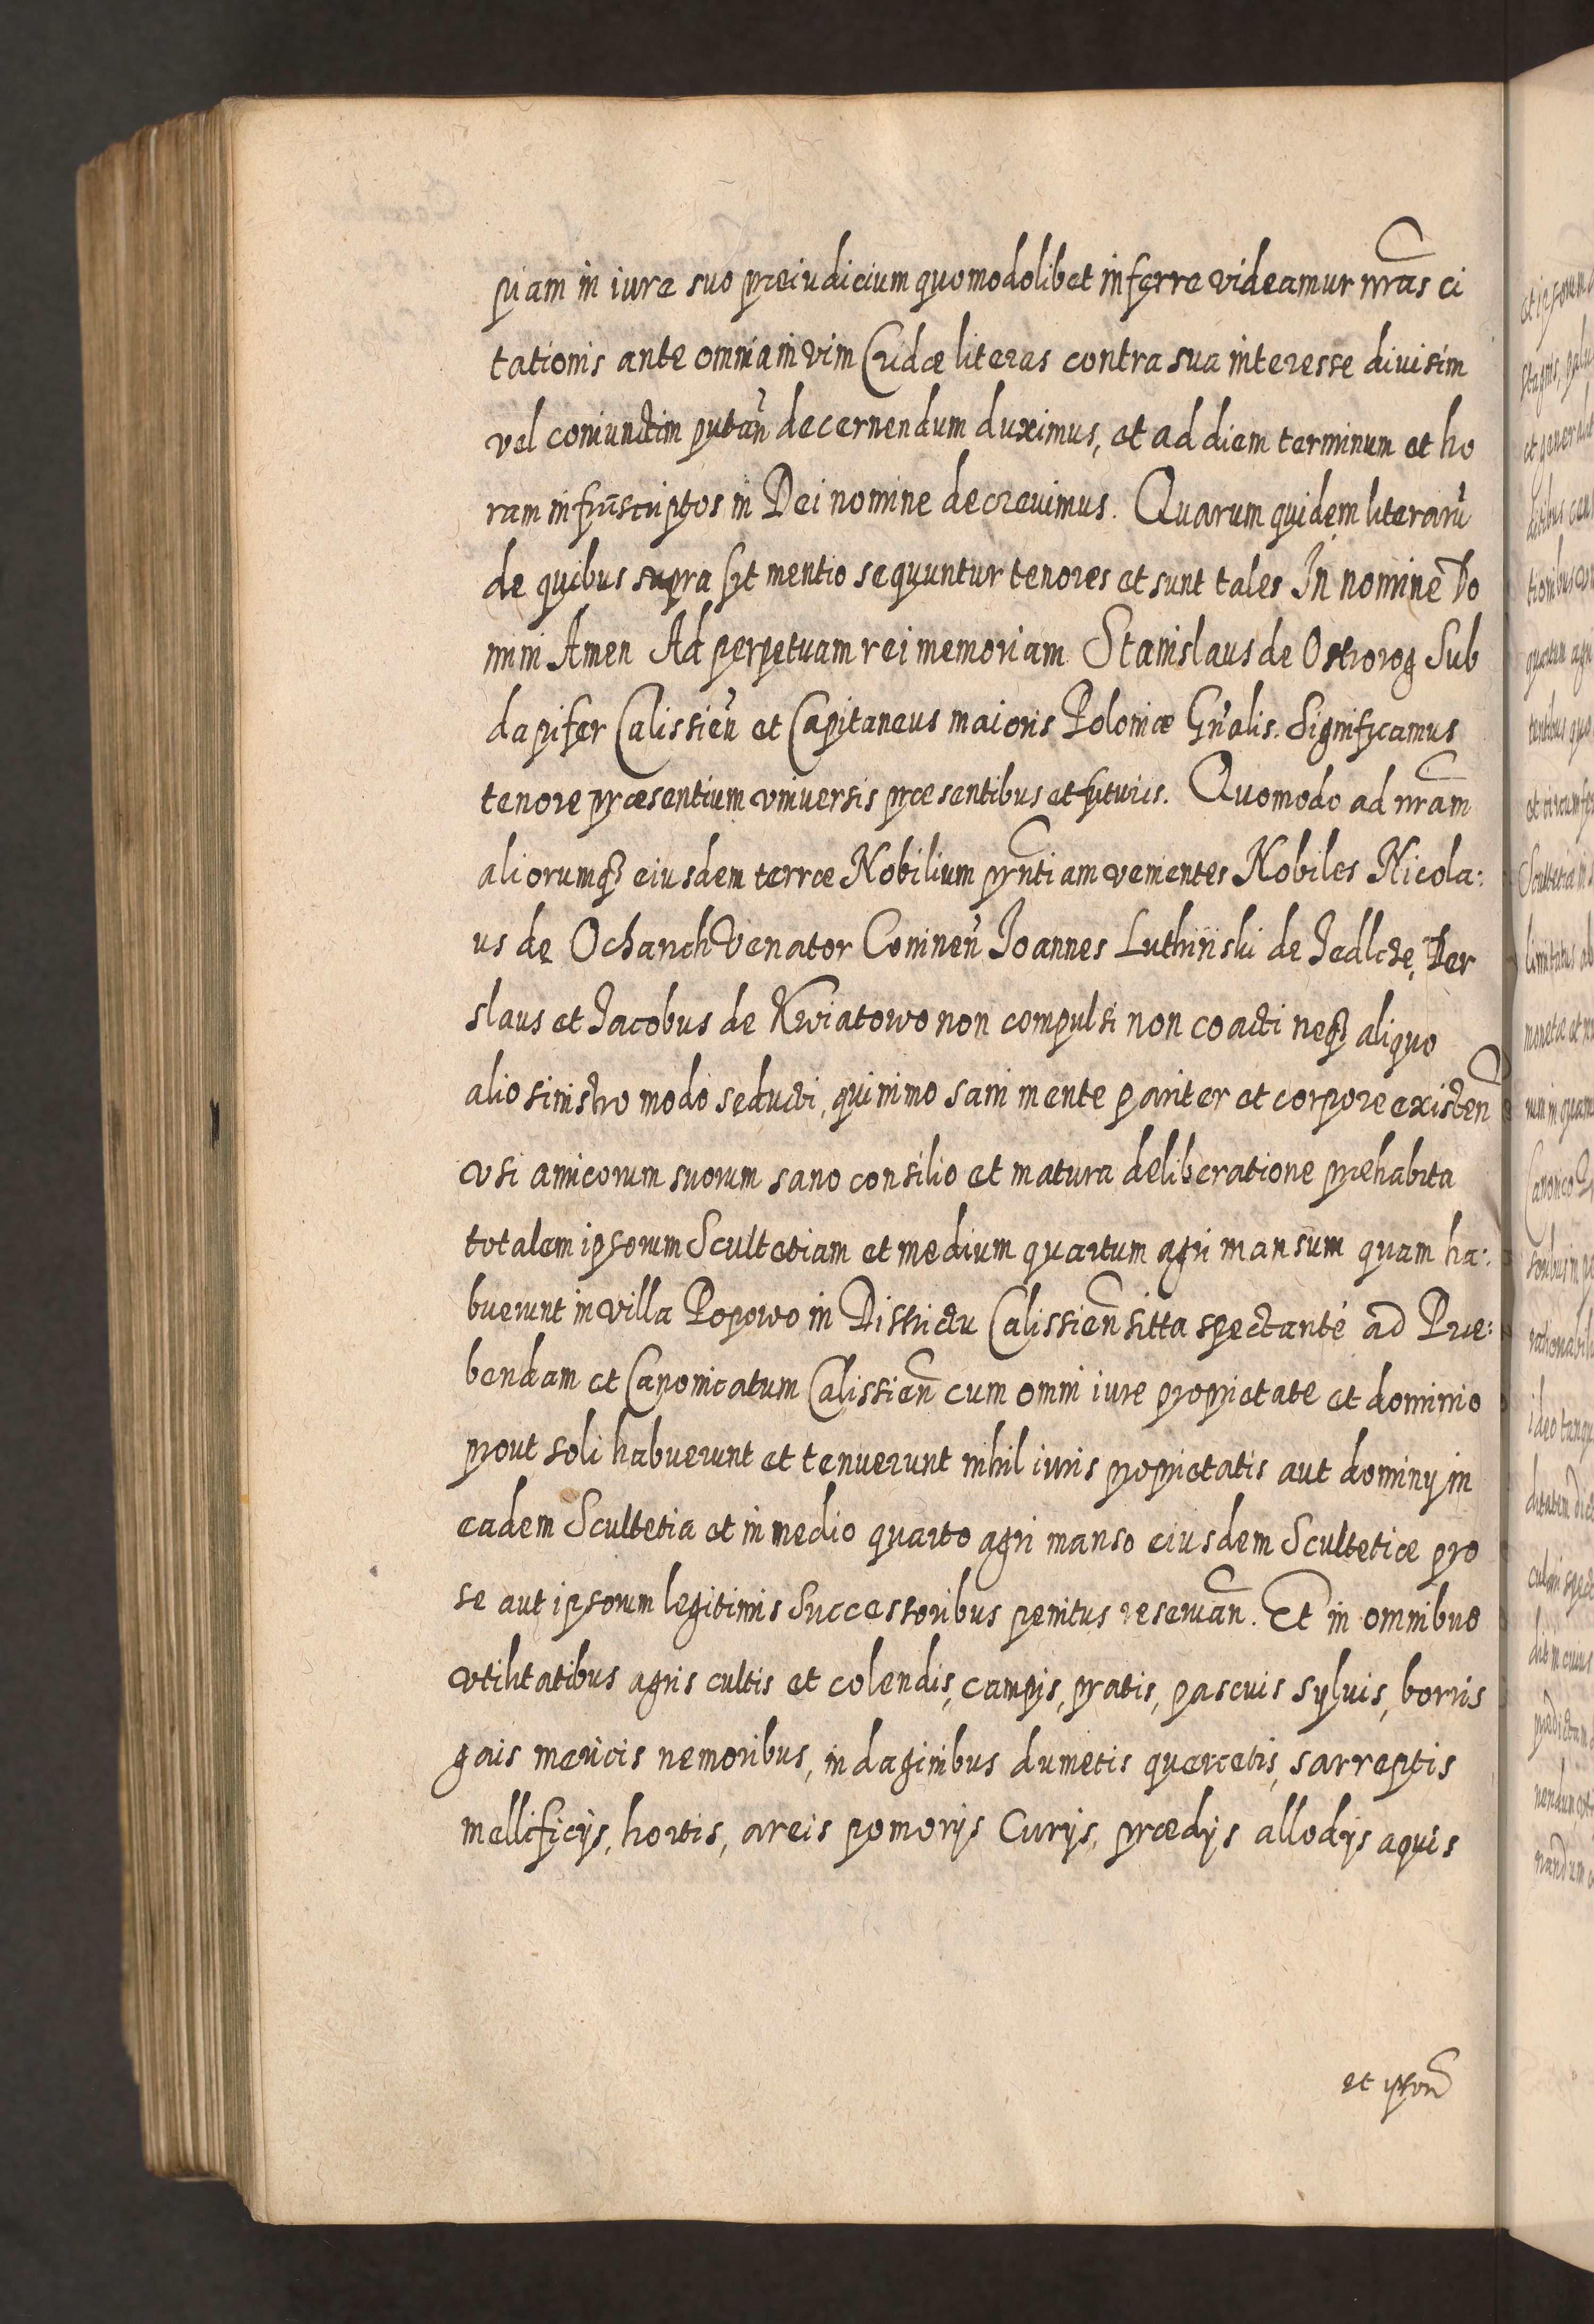 piam in iure suo præiudicium quomodolibet inferre videamur nr̃as ci
tationis ante omnia in vim Cridæ literas contra sua interesse diuisim
vel coniunctim putan̄ decernendum duximus, et ad diem terminum et ho
ram infr̃ascriptos in Dei nomine decreuimus. Quarum quidem literarū
de quibus supra fit mentio sequuntur tenores et sunt tales In nomine Do
mini Amen Ad perpetuam rei memoriam Stanislaus de Ostrorog Sub
dapifer Calissien̄ et Capitaneus maioris Poloniæ Gn̄alis. Significamus
tenore præsentium vniuersis præsentibus et futuris. Quomodo ad nr̃am
aliorumq̃ eiusdem terræ Nobilium pr̃ntiam venientes Nobiles Nicola:
us de Ocharch Venator Coninen̄ Joannes Luthinski de Jedlcze, Der
slaus et Jacobus de Kwiatowo non compulsi non coacti neq̃ aliquo
alio sinistro modo seducti, quinimo sani mente pariter et corpore existen̄
vsi amicorum suorum sano consilio et matura deliberatione præhabita
totalem ipsorum Scultetiam et medium quartum agri mansum quam ha:
buerunt in villa Popowo in Districtu Calissien̄ sitta spectante ad Præ:
bendam et Canonicatum Calissien̄ cum omni iure proprietate et dominio
prout soli habuerunt et tenuerunt nihil iuris proprietatis aut dominy in
eadem Scultetia et in medio quarto agri manso eiusdem Scultetiæ pro
se aut ipsorum legitimis Successoribus penitus reseruan̄. Et in omnibus
vtilitatibus agris cultis et colendis, campis, pratis, pascuis syluis, borris
gais mericis nemoribus, indaginibus dumetis quercetis, sarreptis
mellificijs, hortis, areis pomorijs Curijs, prædijs allodijs aquis
et ipsor̄